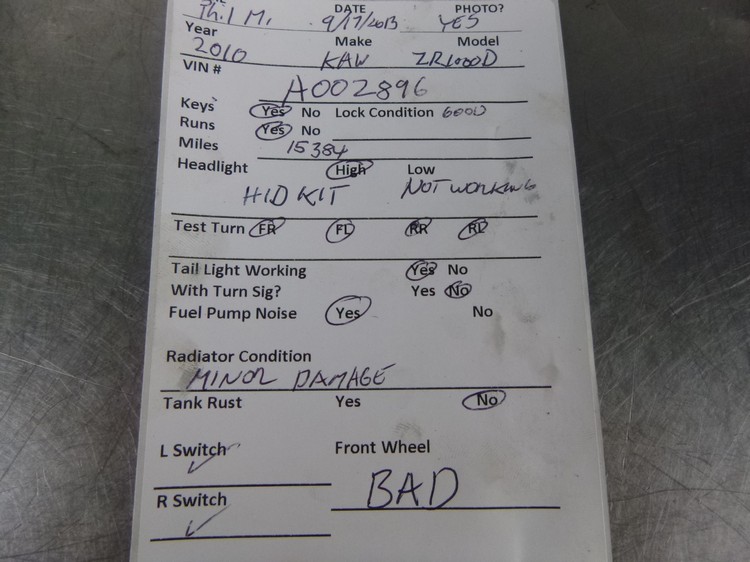 DATE PHOTO?
9/17/2013 YES
Year Make Model
2010 KAW ZR1000D
VIN #
A002896
Keys Yes No Lock Condition GOOD
Runs Yes No
Miles 15384
Headlight High Low
HID KIT NOT WORKING
Test Turn FR FL RR RL
Tail Light Working Yes No
With Turn Sig? Yes No
Fuel Pump Noise Yes No
Radiator Condition
MINOR DAMAGE
Tank Rust Yes No
L Switch Front Wheel
BAD
R Switch